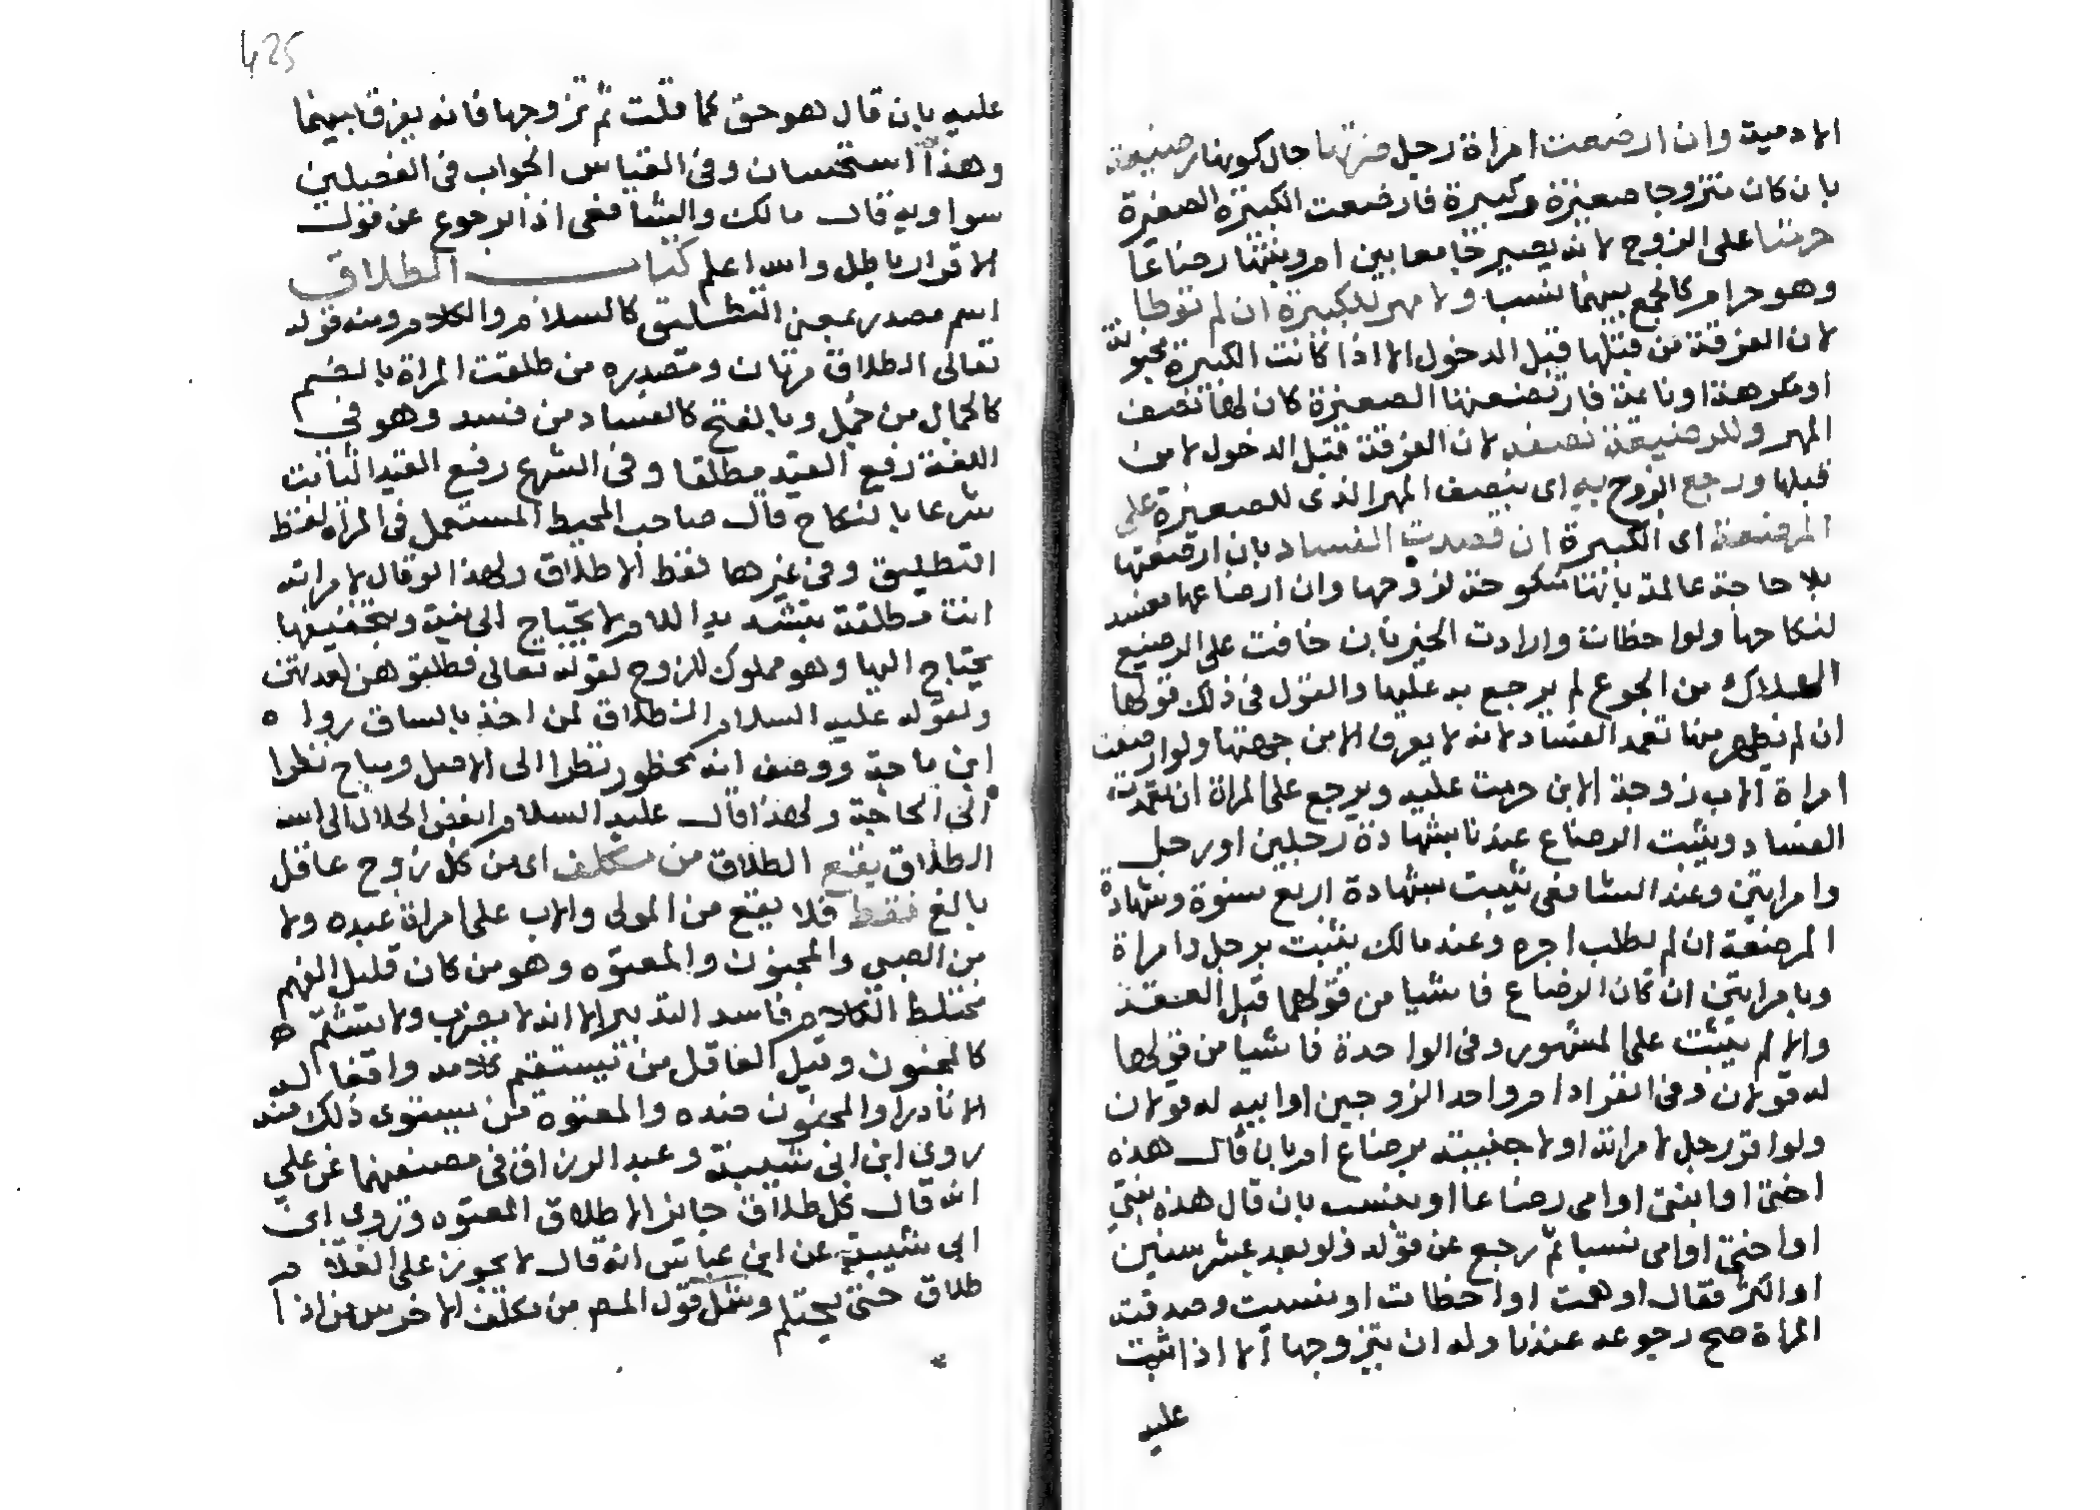 الادمية وان ارضعت امراة رجل ضرتها حال كونها رضيعة
بان كان متزوجا صغيرة وكبيرة فارضعت الكبيرة الصغيرة
حرمتا على الزوج لانه يصير جامعا بين ام وبنتها رضاعا
وهو حرام كالجمع بينهما نسبا ولا مهر للكبيرة ان لم توطا
لان الفرقة من قبلها قبل الدخول الا اذا كانت الكبيرة مجنونة
او مكرهة او نائمة فارتضعتها الصغيرة كان لها نصف
المهر وللرضيعة نصفه لان الفرقة قبل الدخول لا من
قبلها ورجع الزوج به اى بنصف المهر الذى للصغيرة على
المرضعة اى الكبيرة ان قصدت الفساد بان ارضعتها
بلا حاجة عالمة بانها منكوحة لزوجها وان ارضاعها مفسد
لنكاحها ولو اخطات وارادت الخير بان خافت على الرضيع
الهلاك من الجوع لم يرجع به عليها والقول فى ذلك قولها
ان لم يظهر منها تعمد الفساد لانه لا يعرف الا من جهتها ولو ارضعت
امراة الاب زوجة الابن حرمت عليه ويرجع على المراة ان تعمدت
الفساد ويثبت الرضاع عندنا بشهادة رجلين او رجل
وامراتين وعند الشافعى يثبت بشهادة اربع نسوة وشهادة
المرضعة ان لم تطلب اجره وعند مالك يثبت برجل وامراة
وبامراتين ان كان الرضاع فاشيا من قولهما قبل العقد
والا لم يثبت على المشهور وفى الواحدة فاشيا من قولها
له قولان وفى انفراد ام واحد الزوجين او ابيه له قولان
ولو اقر رجل لامراته او لاجنبية برضاع ام بان قال هذه
اختى او ابنتى او امى رضاعا او بنسب بان قال هذه بنتى
او اختى او امى نسبا ثم رجع عن قوله ولو بعد عشر سنين
او اكثر فقال اوهمت او اخطات او نسيت وصدقته
المراة صح رجوعه عندنا وله ان يتزوجها الا اذا ثبت
عليه
425
عليه بان قال هو حق كما قلت ثم تزوجها فانه يفرق بينهما
وهذا استحسان وفى القياس الجواب فى الفصلين
سوا وبه قال مالك والشافعى اذ الرجوع عن قوله
الاقرار باطل والله اعلم كتاب الطلاق
اسم مصدر بمعنى التطليق كالسلام والكلام ومنه قوله
تعالى الطلاق مرتان ومصدره من طلقت المراة بالضم
كالجمال من جمل وبالفتح كالفساد من فسد وهو فى
اللغة رفع القيد مطلقا وفى الشرع رفع القيد الثابت
شرعا بالنكاح قال صاحب المحيط المستعمل فى المراة لفظ
التطليق وفى غيرها لفظ الاطلاق ولهذا لو قال لامراته
انت مطلقة بتشديد اللام لا يحتاج الى نية وبتخفيفها
يحتاج اليها وهو مملوك للزوج لقوله تعالى فطلقوهن لعدتهن
ولقوله عليه السلام الطلاق لمن اخذ بالساق رواه
ابن ماجة ووصف انه محظور نظرا الى الاصل ومباح نظرا
الى الحاجة ولهذا قال عليه السلام ابغض الحلال الى الله
الطلاق يقع الطلاق من مكلف اى من كل زوج عاقل
بالغ فقط فلا يقع من المولى والاب على امراة عبده ولا
من الصبي والمجنون والمعتوه وهو من كان قليل الفهم
مختلط الكلام فاسد التدبير الا انه لا يضرب ولا يشتم
كالمجنون وقيل العاقل من يستقيم كلامه وافعاله
الا نادرا والمجنون ضده والمعتوه من يستوى ذلك منه
روى ابن ابى شيبة وعبد الرزاق فى مصنفيهما عن علي
انه قال كل طلاق جائز الا طلاق المعتوه وروى ابن
ابى شيبة عن ابن عباس انه قال لا يجوز على الغلام
طلاق حتى يحتلم وشمل قول المص من مكلف الاخرس من اذا